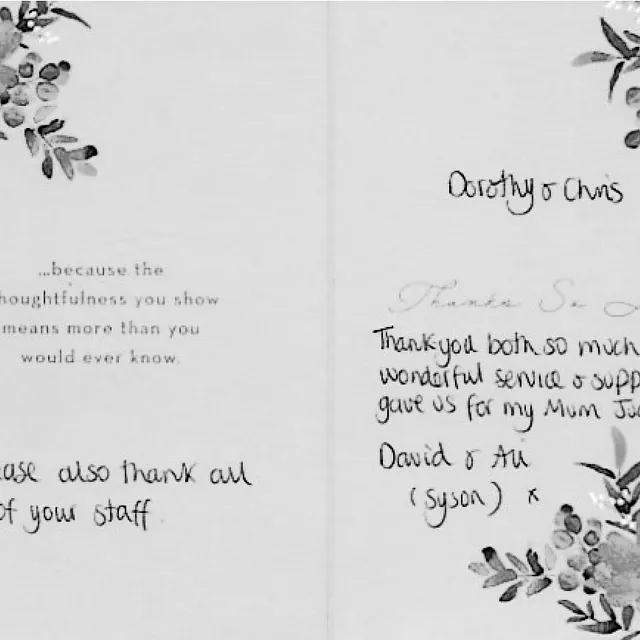 ...because the
houghtfulness you show
means more than you
would ever know.
ease also thank all
of your staff.
Dorothy & Chris
Thanks So
Thankyou both so much
wonderful service & supp
gave us for my Mum Ju
David & Ali
(Syson) x